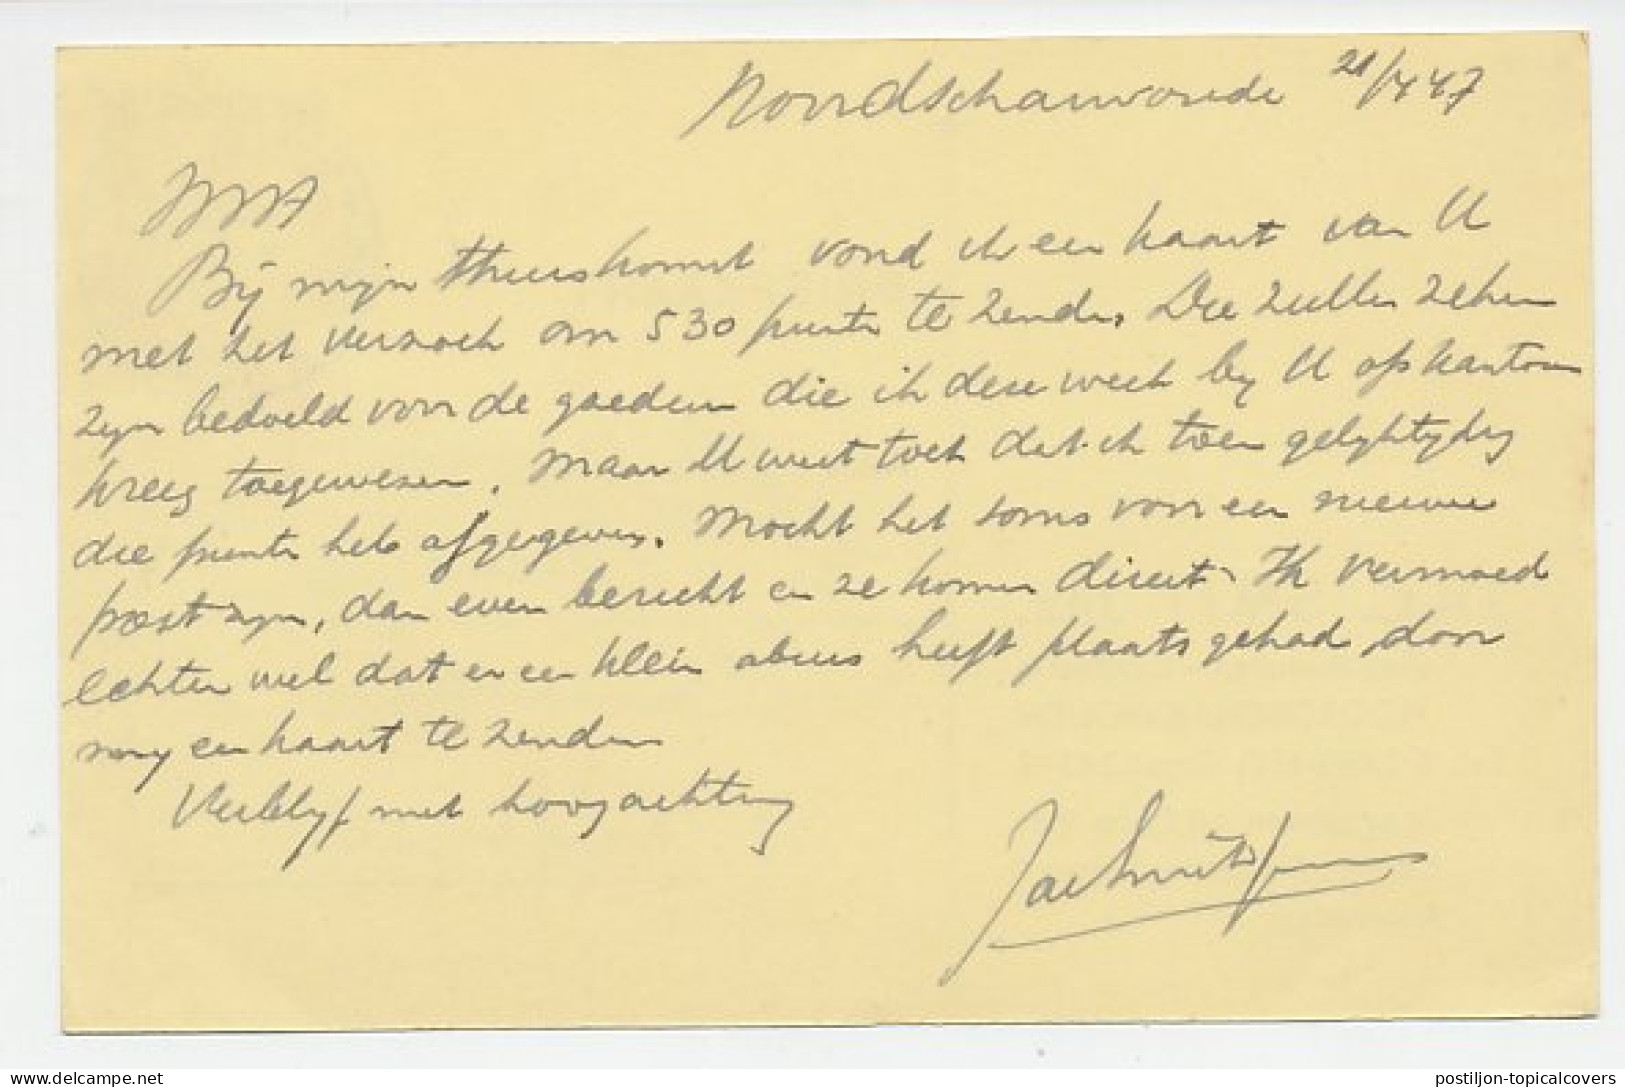 Noordscharwoude 21/4 47
Bij mijn thuiskomst vond ik een kaart van U
met het verzoek om 530 punten te zenden. Die zullen zeker
zijn bedoeld voor de goederen die ik deze week bij U op kantoor
kreeg toegewezen. Maar U weet toch dat ik toen gelijktijdig
die punten heb afgegeven. Mocht het soms voor een nieuwe
post zijn, dan even bericht en ze komen direct. Ik vermoed
echter wel dat er een klein abuis heeft plaats gehad door
mij een kaart te zenden
Verblijf met hoogachting
Jac Smit
postiljon-topicalcovers
delcampe.net